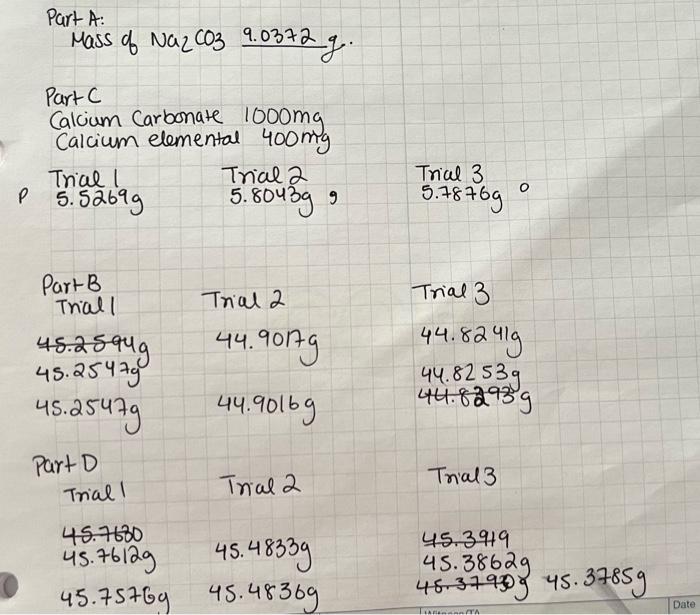 Part A:
Mass of Na2CO3 9.0372 g.
Part C
Calcium Carbonate 1000mg
Calcium elemental 400mg
Trial 1 Trial 2 Trial 3
P 5.5269g 5.8043g 9 5.7876g o
Part B
Trial 1 Trial 2 Trial 3
45.2594g 44.9017g 44.8241g
45.2547g 44.8253g
44.8293g
45.2547g 44.9016g
Part D
Trial 1 Trial 2 Trial 3
45.7630 45.3919
45.7612g 45.4833g 45.3862g
45.3793g 45.3785g
45.7576g 45.4836g
Date